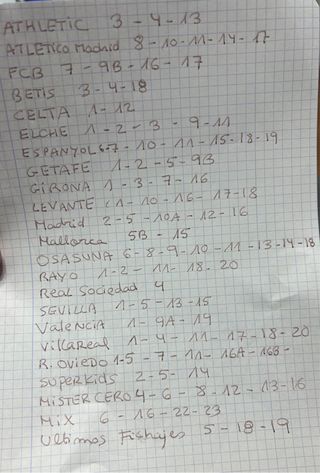 ATHLETIC 3-4-13
ATLETICO Madrid 8-10-11-14-17
FCB 7-9B-16-17
BETIS 3-4-18
CELTA 1-12
ELCHE 1-2-3-9-11
ESPANYOL 6-7-10-11-15-18-19
GETAFE 1-2-5-9B
GIRONA 1-3-7-16
LEVANTE 1-10-16-17-18
Madrid 2-5-10A-12-16
Mallorca 5B-15
OSASUNA 6-8-9-10-11-13-14-18
RAYO 1-2-11-18-20
Real Sociedad 4
SEVILLA 1-5-13-15
Valencia 1-9A-19
VillaReal 1-4-11-17-18-20
R.OVIEDO 1-5-7-11-16A-16B-
SUPERKIDS 2-5-14
MISTER CERO 4-6-8-12-13-16
MIX 6-16-22-23
Ultimos Fichajes 5-18-19